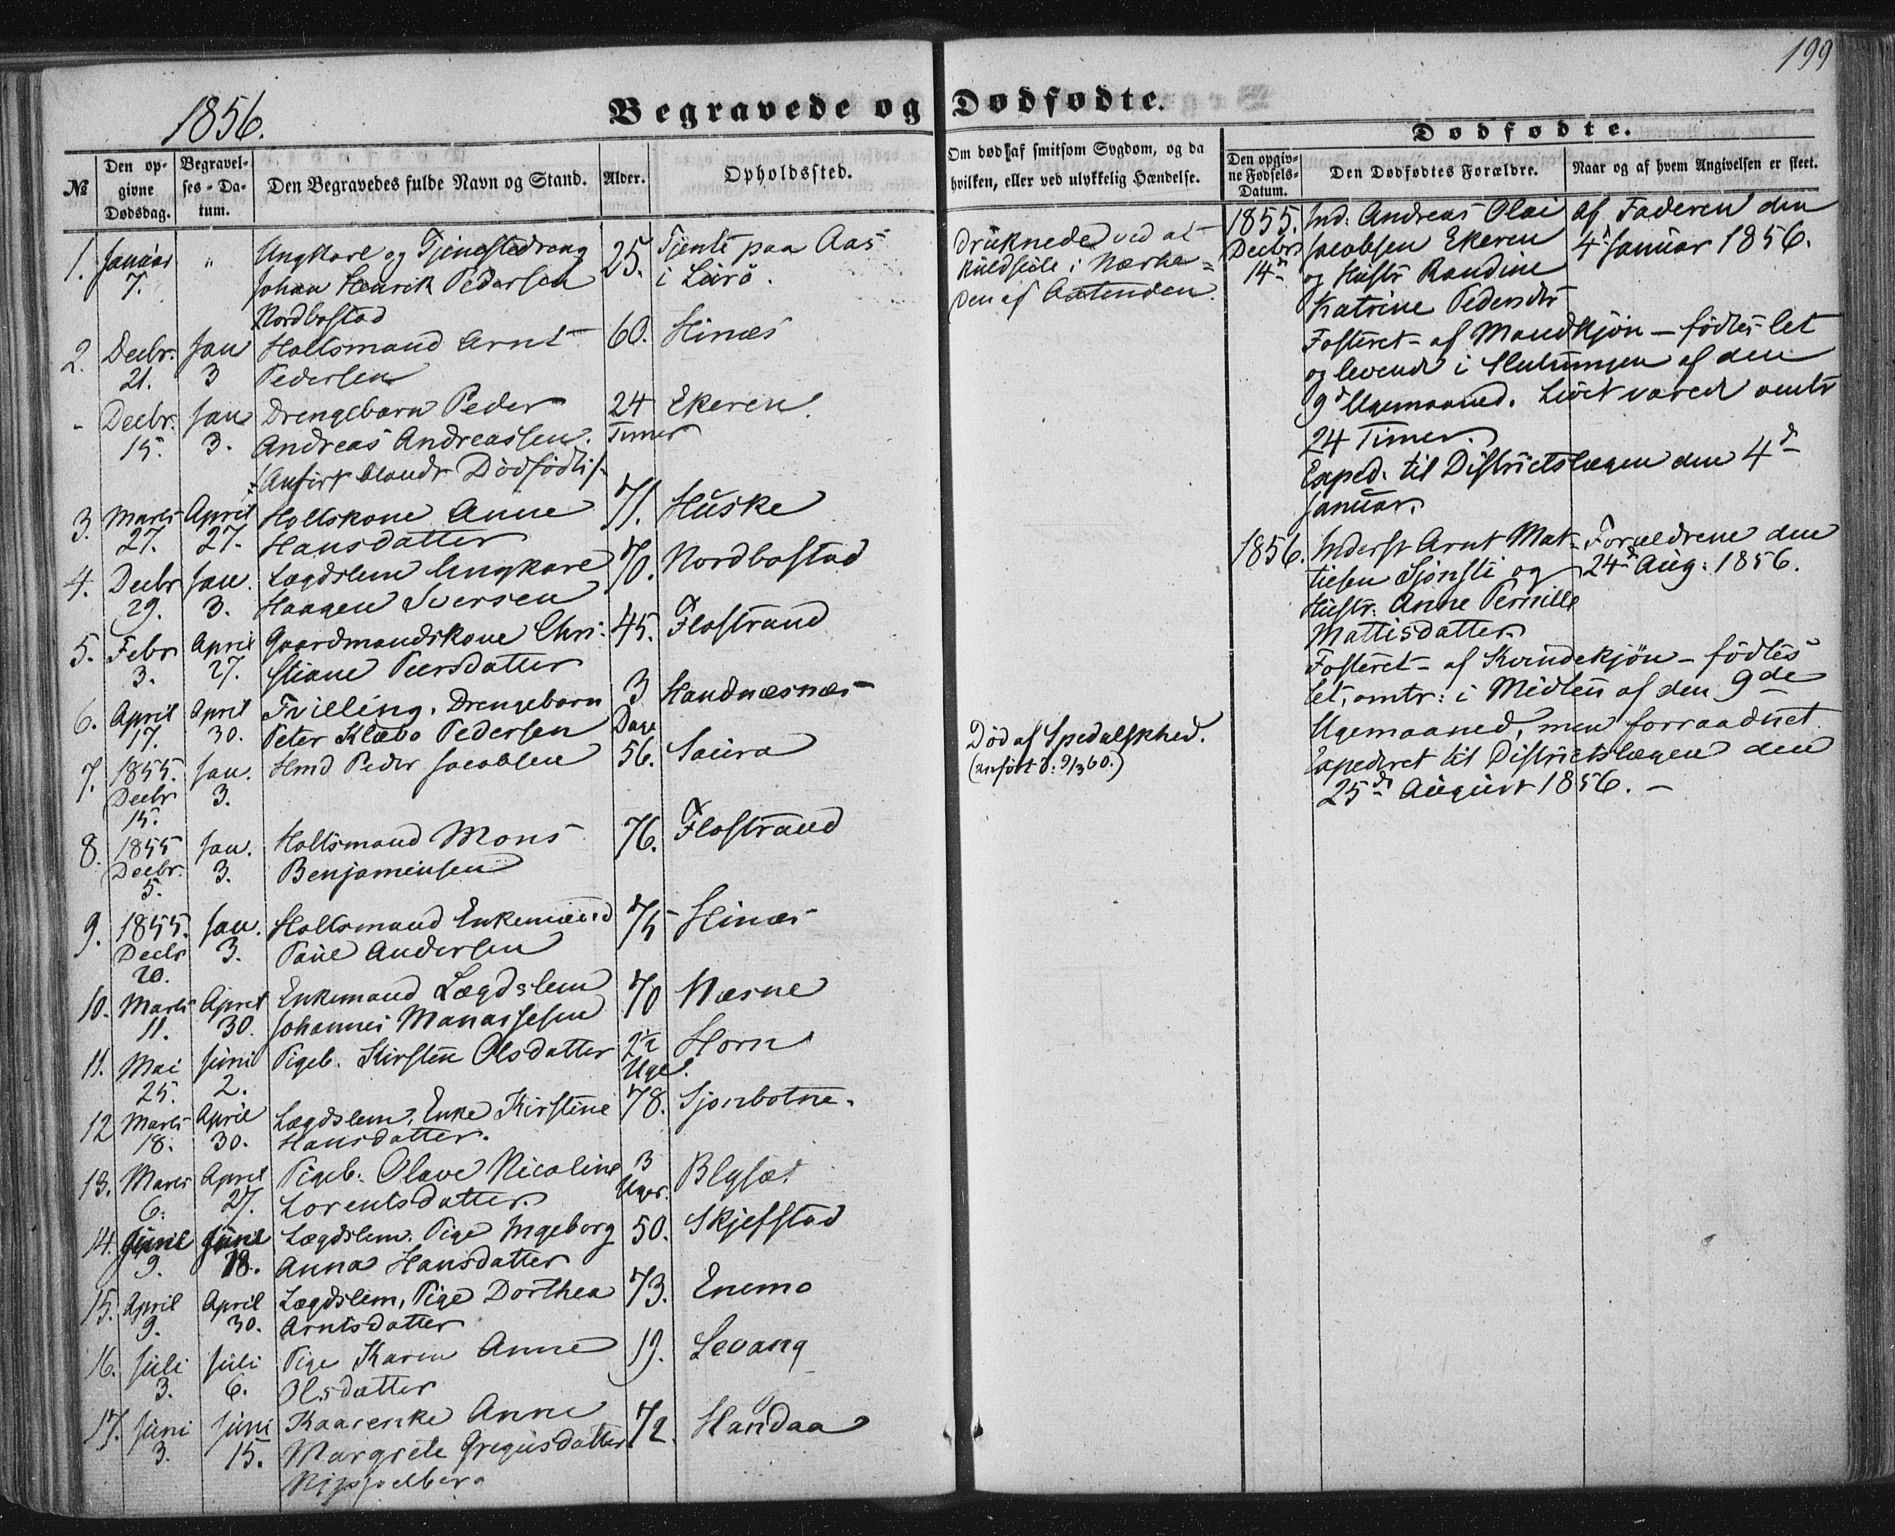 199
1856.
Begravede og Dødfødte.
№
Den opgivne Dødsdag.
Begravelses-Datum.
Den Begravedes fulde Navn og Stand.
Alder.
Opholdssted.
Om død af smitsom Sygdom, og da hvilken, eller ved ulykkelig Hændelse.
Dødfødte.
Den opgivne Fødsels-Datum.
Den Dødfødtes Forældre.
Naar og af hvem Angivelsen er skeet.
1. Januar 7. " Ungkarl og Tjenestedreng 25. Tjente paa Aas
Johan Henrik Pedersen i Lurö.
Nordbostad
Druknede ved at
kuldseile i Nærhe=
den af
2. Decbr. 21. Jan 3 Holtsmand Arnt 60. Hinæs
Pedersen
- Decbr. 15. Jan 3. Drengebarn Peder 24 Timer Ekeren.
Andreas Andreassen.
(Anført blandt Dödfödte).
3. Marts 27. April 27. Holtskone Anne 71. Huske
Hansdatter
4. Decbr 29. Jan. 3. Lægdslem Ungkarl 70. Nordbostad
Haagen Iversen
5. Febr 3. April 27. Gaardmandskone Chri- 45. Flostrand
stiane Peersdatter
6. April 17. April 30. Tvilling, Drengebarn 3 Dage Handnæsnæs
Peter Klæbo Pedersen
7. 1855. Decbr 15. Jan. 3. Hmd Peder Jacobsen 56. Saura
Död af Spedalskhed.
(anfört d: 9/3 60.)
8. 1855 Decbr. 5. Jan. 3. Holtsmand Mons 76. Flostrand
Benjaminsen
9. 1855. Decbr 20. Jan. 3. Holtsmand Enkemand 75 Hinæs
Paul Andersen
10. Marts 11. April 30. Enkemand Lægdslem 70 Næsne
Johannes Manassesen
11. Mai 25. Juni 2. Pigeb. Kirsten Olsdatter 2½ Uge. Horn
12 Marts 18. April 30. Lægdslem, Enke Kirstine 78. Sjonbotne.
Hansdatter.
13. Marts 6. April 27. Pigeb. Olave Nicoline 3 Uger. Blysæt
Lorentsdatter.
14. Juni 9. Juni 18. Lægdslem. Pige Ingeborg 50. Skjefstad
Anna Hansdatter
15. April 9. April 30. Lægdslem, Pige Dorthea 73. Enemo
Arntsdatter
16. Juli 3. Juli 6. Pige Karen Anne 19. Levang
Olsdatter
17. Juni 3. Juni 15. Kaarenke Anne 72. Handaa
Margrete Gregusdatter
1855. Decbr 14de Ind: Andreas Olai Af Faderen den
Jacobsen Ekeren 4de Januar 1856.
og Hustr Randine
Katrine Pedersdtr
Fosteret af Mandkjön — födtes let
og levende i Slutningen af den
9de Ugemaaned. Livet varede omtr
24 Timer.
Exped. til Districtslægen den 4de
Januar.
1856. Inderst Arnt Mat- Forældrene den
tisen Sjonsti og 24de Aug: 1856.
Hustr: Anne Pernille
Mattisdatter.
Fosteret — af Kvindekjön — födtes
let, omtr: i Midten af den 9de
Ugemaaned, men forraadnet.
Expederet til Districtslægen den
25de August 1856. —